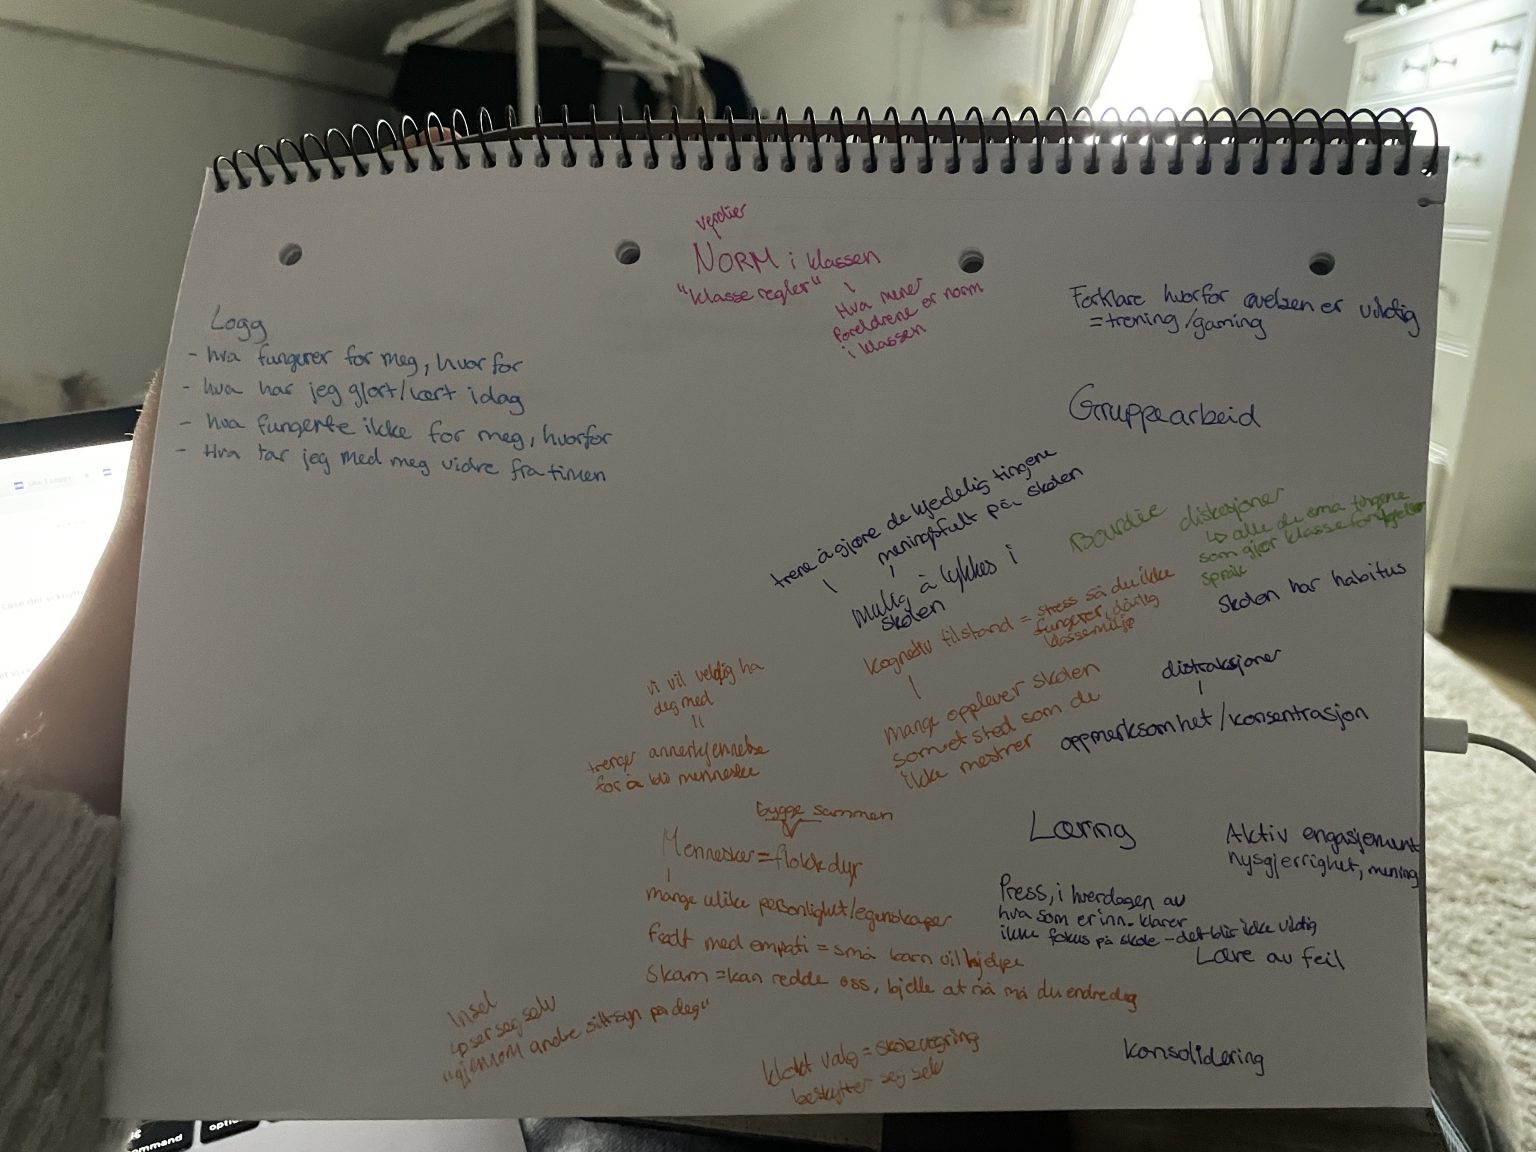 verdier
NORM i klassen
"klasse regler"
Hva mener
foreldrene er norm
i klassen
Forklare hvorfor øvelsen er viktig
= trening/gaming
Logg
- hva fungerer for meg, hvorfor
- hva har jeg gjort/lært idag
- hva fungerte ikke for meg, hvorfor
- Hva tar jeg med meg vidre fra timen
Gruppearbeid
trene å gjøre de kjedelig tingene
meningsfult på skolen
mulig å lykkes i
skolen
Bourdie
diskosjoner
↳ alle de små tingene
som gjør
språk
Skolen har habitus
kognetiv tilstand = stress så du ikke
fungerer, dårlig
klassemiljø
mange opplever skolen
som et sted som de
ikke mestrer
distraksjoner
oppmerksomhet/konsentrasjon
vi vil veldig ha
deg med
=
trenger annerkjennelse
for å bli menneske
bygge sammen
Mennesker = flokkdyr
mange ulike personlighet/egenskaper
født med empati = små barn vil hjelpe
Skam = kan redde oss, bjelle at nå må du endre deg
Læring
Aktiv engasjement
nysgjerrighet, mening
Press, i hverdagen av
hva som er inn. klarer
ikke fokus på skole - det blir ikke viktig
Lære av feil
Insel
↳ ser seg selv
"gjennom andre sitt syn på deg"
klokt valg = skolevegring
beskytter seg selv
konsolidering
command
optio